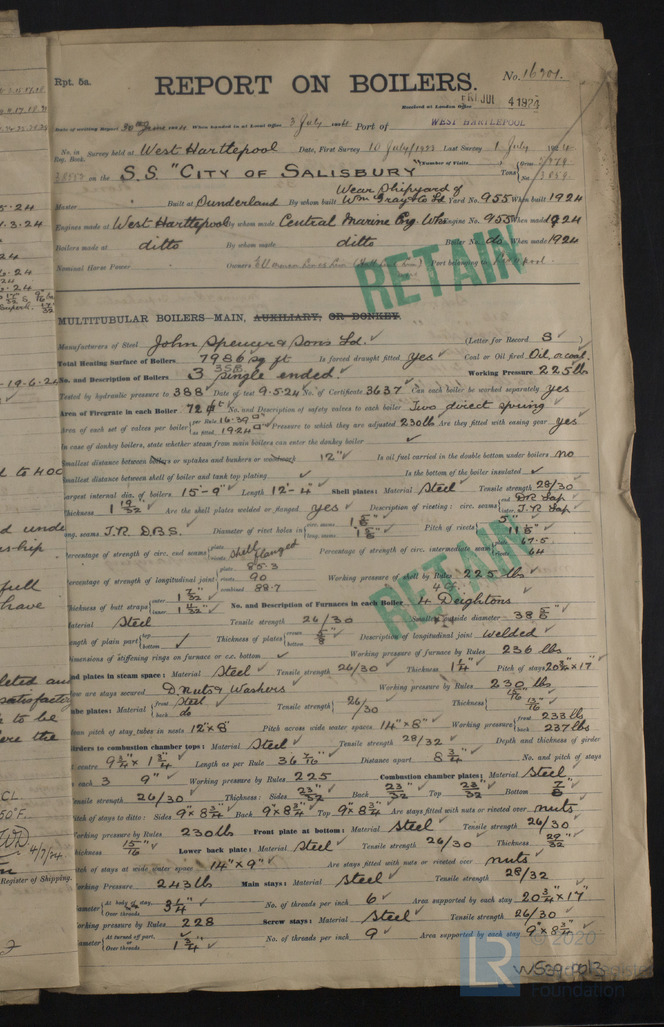 Rpt. 5a.
REPORT ON BOILERS.
No. 16901.
Received at London Office FRI. JUL 4 1924
Date of writing Report 30th June 1924 When handed in at Local Office 3 July 1924 Port of WEST HARTLEPOOL
No. in Reg. Book. Survey held at West Hartlepool Date, First Survey 10 July/1923 Last Survey 1 July 1924
on the S.S. "CITY OF SALISBURY" (Number of Visits) Tons Gross Net
Master Built at Sunderland By whom built Wear Shipyard of Wm Gray & Co Ld Yard No. 955 When built 1924
Engines made at West Hartlepool By whom made Central Marine Eng. Wks Engine No. 955 When made 1924
Boilers made at ditto By whom made ditto Boiler No. do When made 1924
Nominal Horse Power Owners Port belonging to
RETAIN
MULTITUBULAR BOILERS—MAIN, AUXILIARY, OR DONKEY.
Manufacturers of Steel John Spencer & Sons Ld. (Letter for Record S)
Total Heating Surface of Boilers 7986 sq ft Is forced draught fitted yes Coal or Oil fired Oil or coal.
No. and Description of Boilers 3 single ended. Working Pressure 225 lbs
Tested by hydraulic pressure to 388 Date of test 9-5-24 No. of Certificate 3637 Can each boiler be worked separately yes
Area of Firegrate in each Boiler No. and Description of safety valves to each boiler Two direct spring
Area of each set of valves per boiler per Rule 16.39 as fitted 19.24 Pressure to which they are adjusted 230 lbs Are they fitted with easing gear yes
In case of donkey boilers, state whether steam from main boilers can enter the donkey boiler
Smallest distance between boilers or uptakes and bunkers or woodwork 12" Is oil fuel carried in the double bottom under boilers no
Smallest distance between shell of boiler and tank top plating Is the bottom of the boiler insulated
Largest internal dia. of boilers 15'-9" Length 12'-4" Shell plates: Material Steel Tensile strength 28/30
Thickness 1 19/32 Are the shell plates welded or flanged yes Description of riveting: circ. seams end D.R. Lap inter. T.R. Lap
long. seams T.R. D.B.S. Diameter of rivet holes in circ. seams 1 5/8" long. seams 1 5/8" Pitch of rivets 5" 11 1/8"
Percentage of strength of circ. end seams plate shell rivets flanged Percentage of strength of circ. intermediate seam plate 67.5 rivets 64
Percentage of strength of longitudinal joint plate 85.3 rivets 90 combined 88.7 Working pressure of shell by Rules 225 lbs
RETAIN
Thickness of butt straps outer 1 7/32" inner 1 11/32" No. and Description of Furnaces in each Boiler 4 Deightons
Material Steel Tensile strength 26/30 Smallest outside diameter 38 5/8"
Length of plain part top bottom Thickness of plates crown bottom 5/8" Description of longitudinal joint welded
Dimensions of stiffening rings on furnace or c.c. bottom Working pressure of furnace by Rules 236 lbs
End plates in steam space: Material Steel Tensile strength 26/30 Thickness 1 1/4" Pitch of stays 20 3/4" x 17"
How are stays secured D. Nuts & Washers Working pressure by Rules 230 lbs
Tube plates: Material front Steel back do Tensile strength 26/30 Thickness 15/16" 13/16"
Mean pitch of stay tubes in nests 12" x 8" Pitch across wide water spaces 14" x 8" Working pressure front 233 lbs back 237 lbs
Girders to combustion chamber tops: Material Steel Tensile strength 28/32 Depth and thickness of girder
at centre 9 3/4" x 1 3/4" Length as per Rule 36 7/16" Distance apart 8 3/4" No. and pitch of stays
in each 3 9" Working pressure by Rules 225 Combustion chamber plates: Material Steel
Tensile strength 26/30 Thickness: Sides 23/32 Back 23/32 Top 23/32 Bottom 7/8
Pitch of stays to ditto: Sides 9" x 8 3/4" Back 9" x 8 3/4" Top 9" x 8 3/4" Are stays fitted with nuts or riveted over nuts
Working pressure by Rules 230 lbs Front plate at bottom: Material Steel Tensile strength 26/30
Thickness 15/16" Lower back plate: Material Steel Tensile strength 26/30 Thickness 29/32
Pitch of stays at wide water space 14" x 9" Are stays fitted with nuts or riveted over nuts
Working Pressure 243 lb Main stays: Material Steel Tensile strength 28/32
Diameter At body of stay, Over threads 3 1/4" No. of threads per inch 6 Area supported by each stay 20 3/4" x 17"
Working pressure by Rules 228 Screw stays: Material Steel Tensile strength 26/30
Diameter At turned off part, Over threads 1 3/4" No. of threads per inch 9 Area supported by each stay 9" x 8 3/4"
© 2020
LR
Foundation